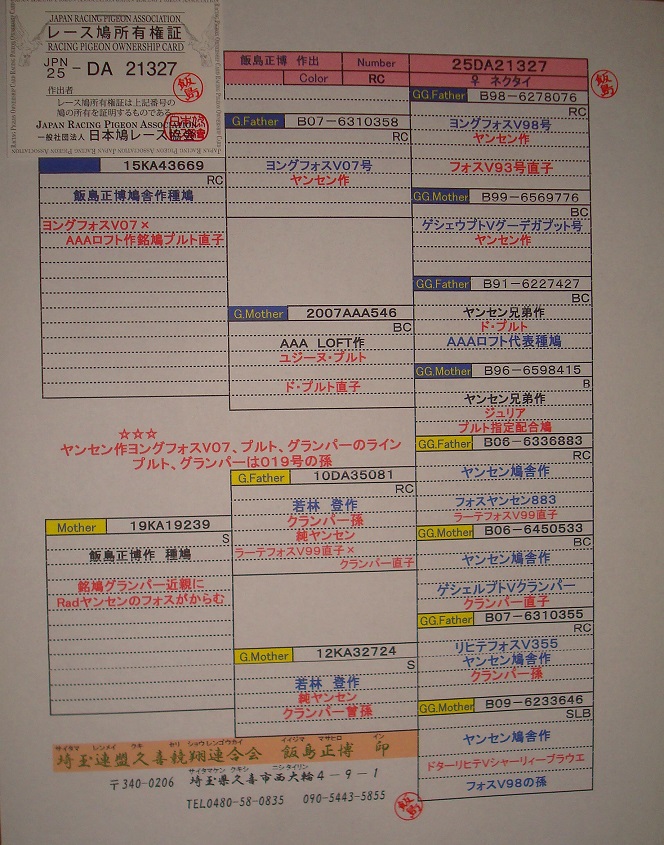 JAPAN RACING PIGEON ASSOCIATION
レース鳩所有権証
RACING PIGEON OWNERSHIP CARD
JPN
25 - DA 21327
作出者
レース鳩所有権証は上記番号の
鳩の所有を証明するものである
JAPAN RACING PIGEON ASSOCIATION
一般社団法人 日本鳩レース協会
飯島
飯島正博 作出 Number 25DA21327
Color RC ♀ ネクタイ
飯島
15KA43669
RC
飯島正博鳩舎作種鳩
ヨングフォスV07×
AAAロフト作銘鳩プルト直子
G.Father B07-6310358
RC
ヨングフォスV07号
ヤンセン作
G.Mother 2007AAA546
BC
AAA LOFT作
ユジーヌ・プルト
ド・プルト直子
GG.Father B98-6278076
RC
ヨングフォスV98号
ヤンセン作
フォスV93号直子
GG.Mother B99-6569776
BC
ゲシェウプトVグーデガブット号
ヤンセン作
GG.Father B91-6227427
BC
ヤンセン兄弟作
ド・プルト
AAAロフト代表種鳩
GG.Mother B96-6598415
B
ヤンセン兄弟作
ジュリア
プルト指定配合鳩
☆☆☆
ヤンセン作ヨングフォスV07、プルト、グランパーのライン
プルト、グランパーは019号の孫
Mother 19KA19239
S
飯島正博作 種鳩
銘鳩グランパー近親に
Radヤンセンのフォスがからむ
G.Father 10DA35081
RC
若林 登作
クランパー孫
純ヤンセン
ラーテフォスV99直子×
クランパー直子
G.Mother 12KA32724
S
若林 登作
純ヤンセン
クランパー曽孫
GG.Father B06-6336883
RC
ヤンセン鳩舎作
フォスヤンセン883
ラーテフォスV99直子
GG.Mother B06-6450533
BC
ヤンセン鳩舎作
ゲシェルプトVクランパー
クランパー直子
GG.Father B07-6310355
RC
リヒテフォスV355
ヤンセン鳩舎作
クランパー孫
GG.Mother B09-6233646
SLB
ヤンセン鳩舎作
ドターリヒテVシャーリィーブラウエ
フォスV98の孫
サイタマ レンメイ クキ かり ショウレンゴウカイ イイジマ マサヒロ イン
埼玉連盟久喜競翔連合会 飯島正博 印
サイタマケン クキシ ニシタイリン
〒340-0206 埼玉県久喜市西大輪4-9-1
TEL0480-58-0835 090-5443-5855
飯島